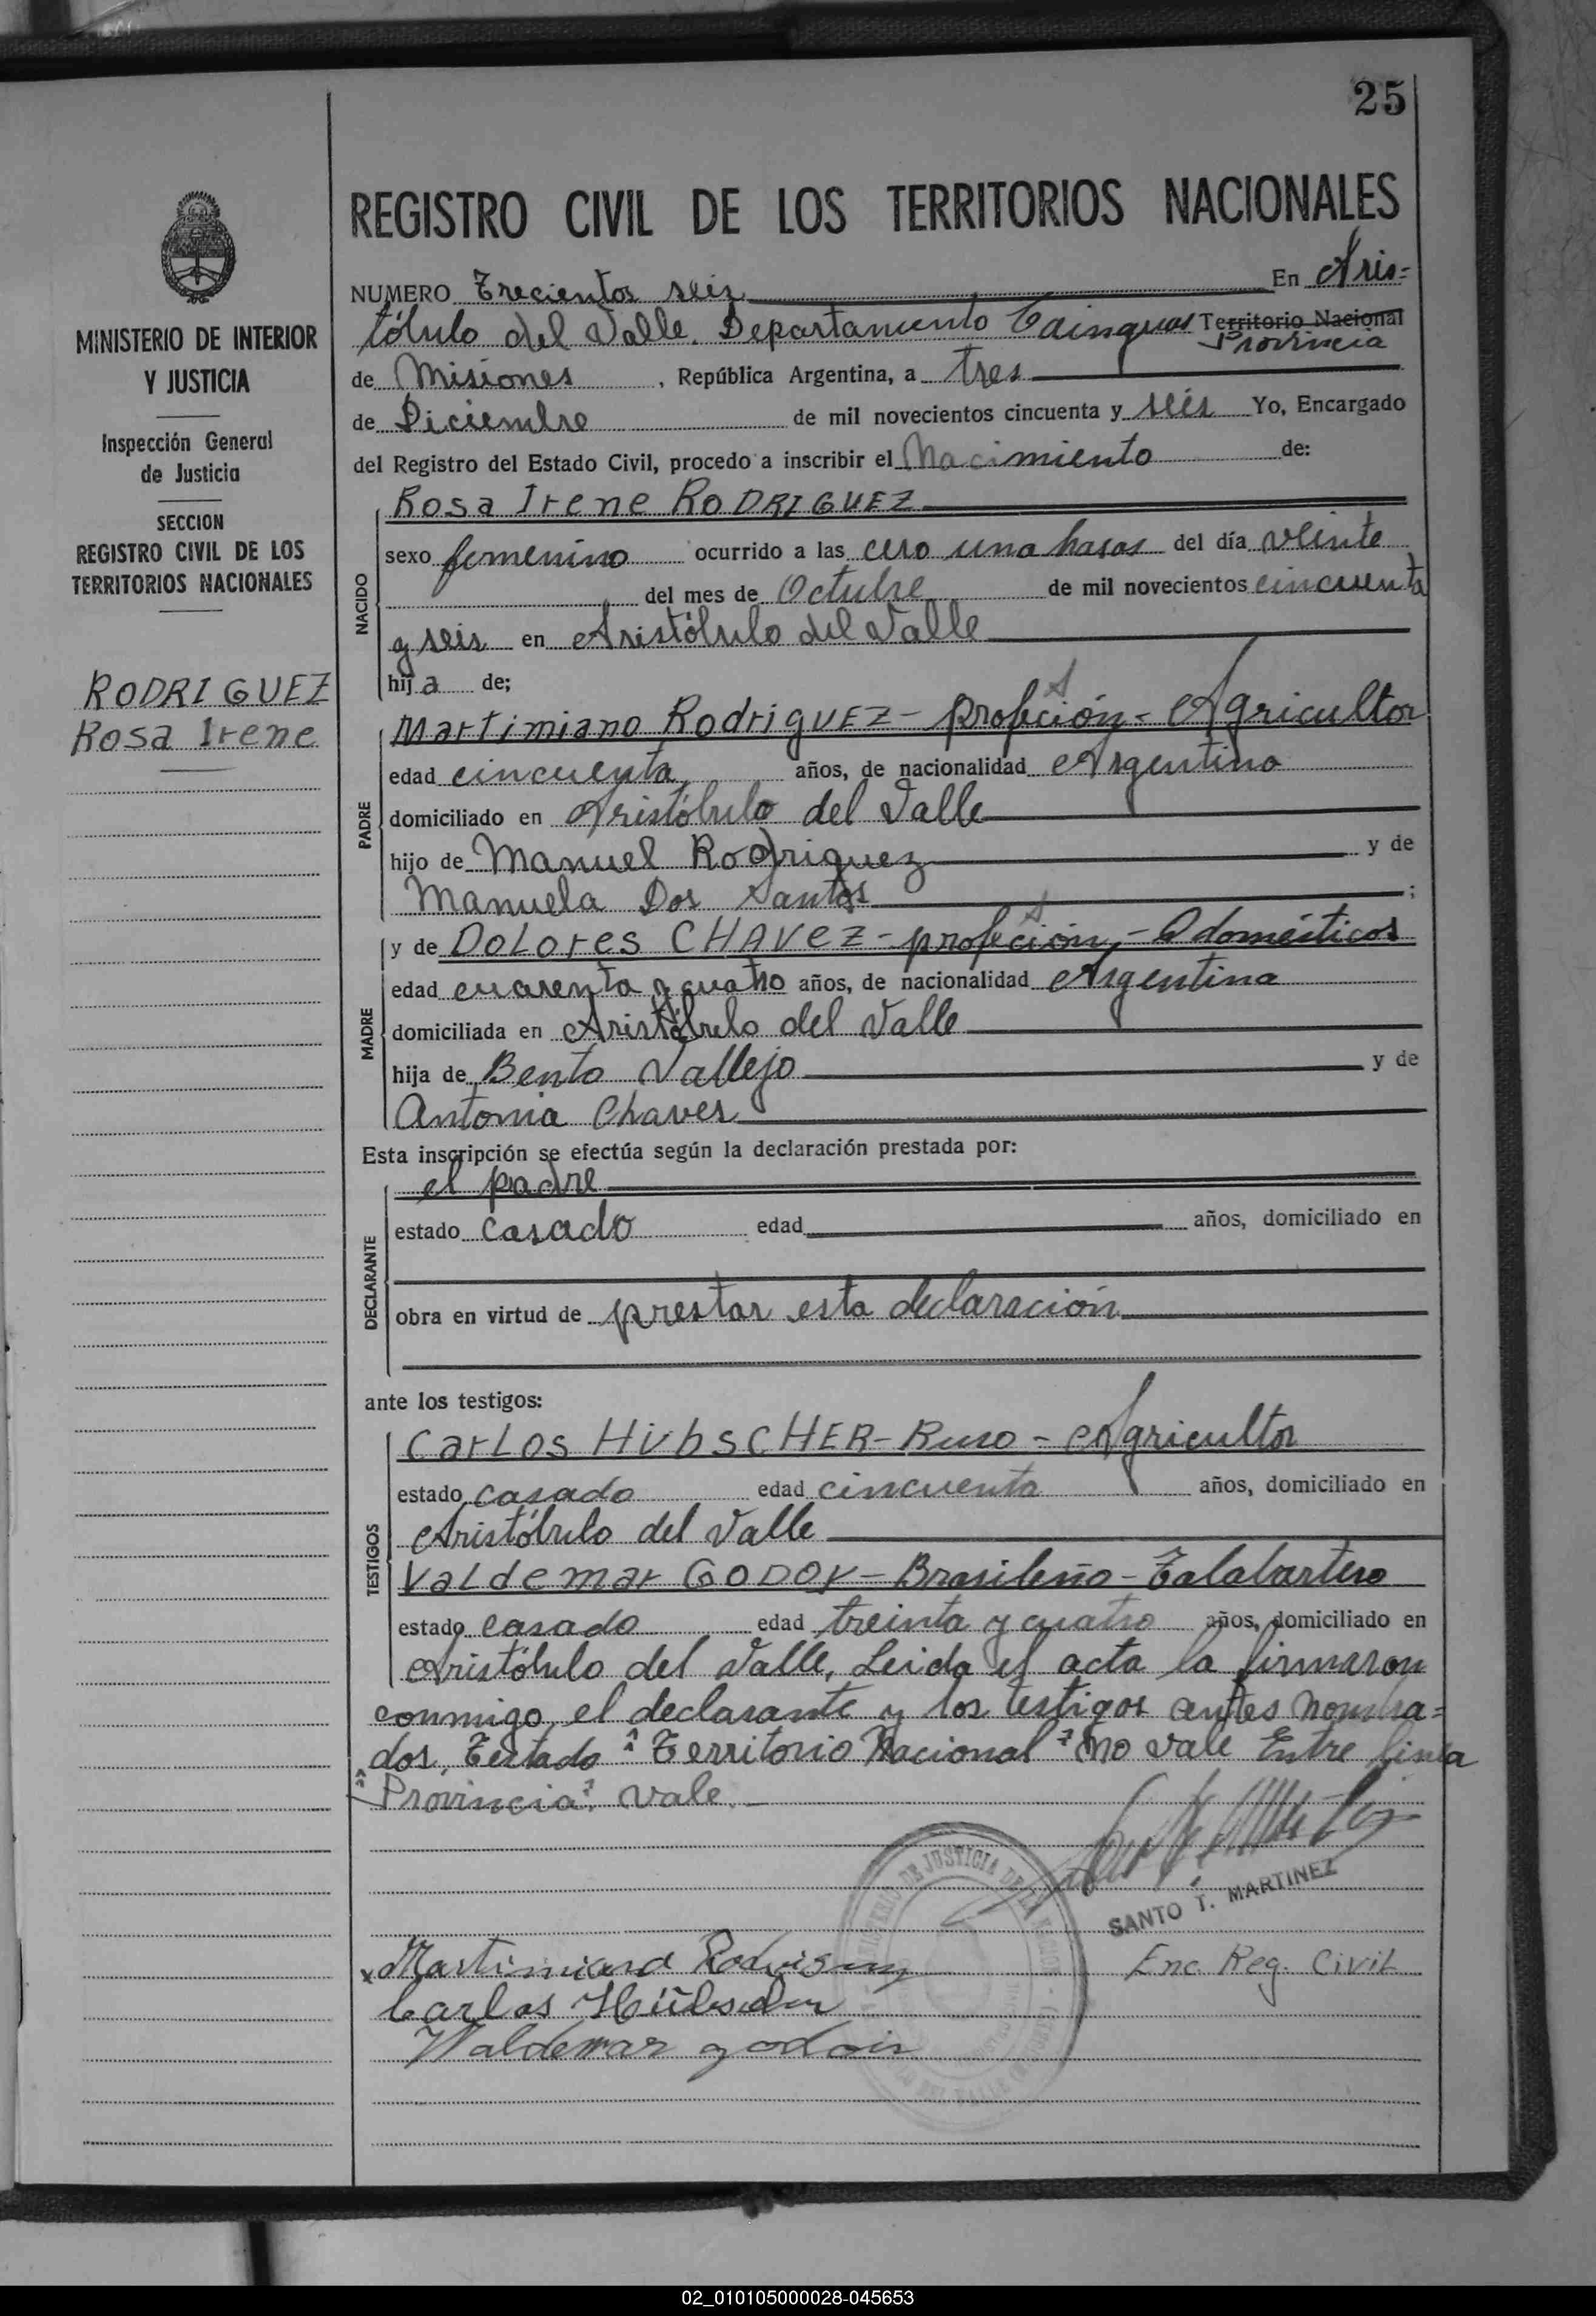 25
REGISTRO CIVIL DE LOS TERRITORIOS NACIONALES
MINISTERIO DE INTERIOR
Y JUSTICIA
Inspección General
de Justicia
SECCION
REGISTRO CIVIL DE LOS
TERRITORIOS NACIONALES
RODRIGUEZ
Rosa Irene
NUMERO Trecientos seis En Aris=
tóbulo del Valle. Departamento Cainguas Territorio Nacional
Provincia
de Misiones, República Argentina, a tres
de Diciembre de mil novecientos cincuenta y seis Yo, Encargado
del Registro del Estado Civil, procedo a inscribir el Nacimiento de:
NACIDO
Rosa Irene RODRIGUEZ
sexo femenino ocurrido a las cero una horas del día veinte
del mes de Octubre de mil novecientos cincuenta
y seis en Aristóbulo del Valle
hija de;
PADRE
Martimiano Rodriguez - profeción - Agricultor
edad cincuenta años, de nacionalidad Argentino
domiciliado en Aristóbulo del Valle
hijo de Manuel Rodriguez y de
Manuela Dos Santos ;
MADRE
y de DoLores CHAVEZ - profeción, - Q domésticos
edad cuarenta y cuatro años, de nacionalidad Argentina
domiciliada en Aristóbulo del Valle
hija de Bento Vallejo y de
Antonia Chaves
Esta inscripción se efectúa según la declaración prestada por:
DECLARANTE
el padre
estado casado edad años, domiciliado en
obra en virtud de prestar esta declaración
ante los testigos:
TESTIGOS
CarLos HubSCHER - Ruso - Agricultor
estado casado edad cincuenta años, domiciliado en
Aristóbulo del Valle
VaLdemar GODOY - Brasileño - Talabartero
estado casado edad treinta y cuatro años, domiciliado en
Aristóbulo del Valle, Leida el acta la firmaron
conmigo, el declarante y los testigos antes nombra=
dos, Testado "Territorio Nacional" no vale Entre linea
"Provincia" vale.
SANTO T. MARTINEZ
Enc. Reg. Civil
x Martimiano Rodriguez
Carlos Hübscher
Waldemar godois
02_010105000028-045653